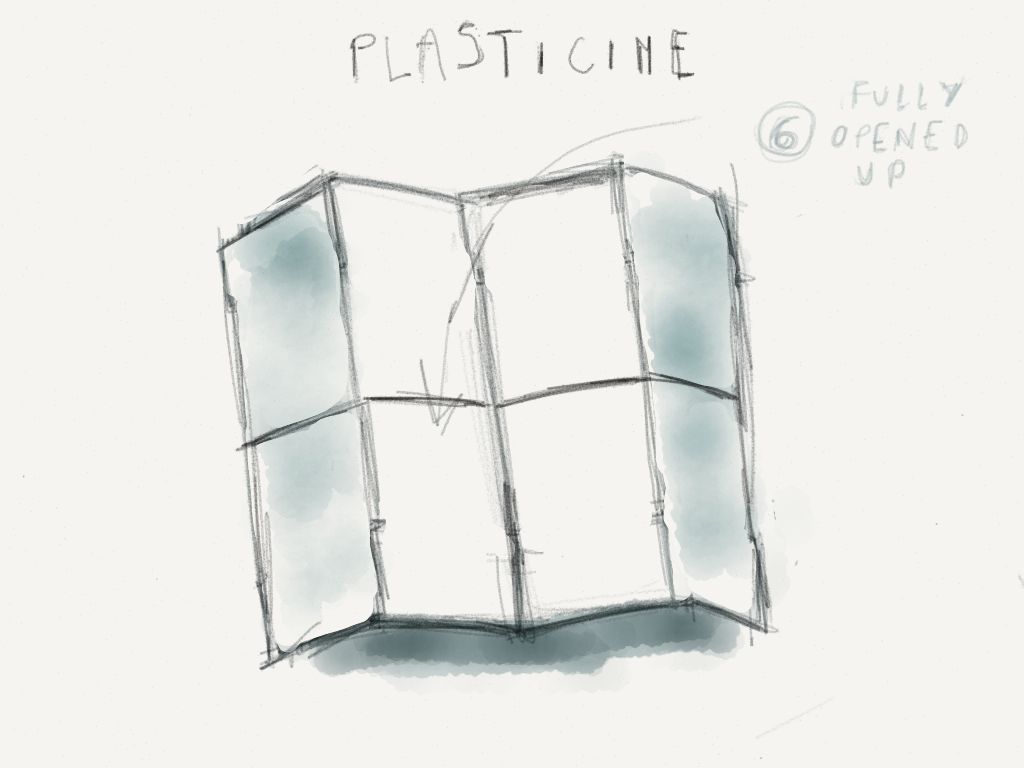 PLASTICINE
6
FULLY
OPENED
UP